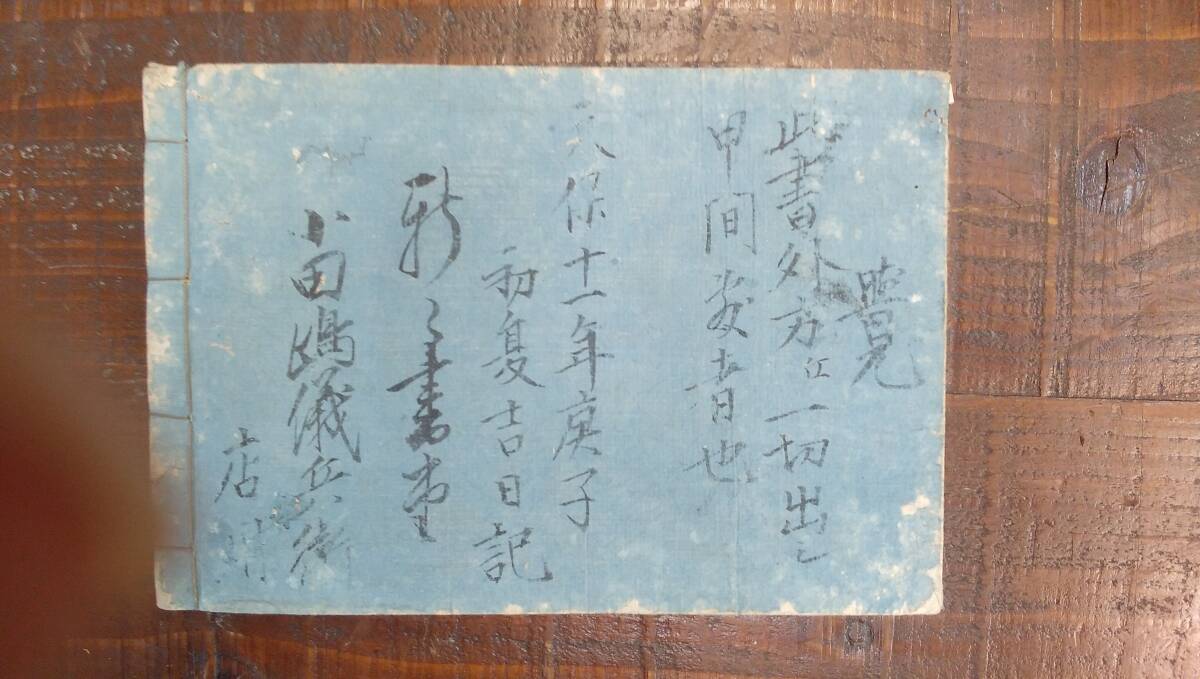 覚
此書外方江一切出し
申間敷者也
天保十一年庚子
初夏吉日記
小田嶋儀兵衛
店